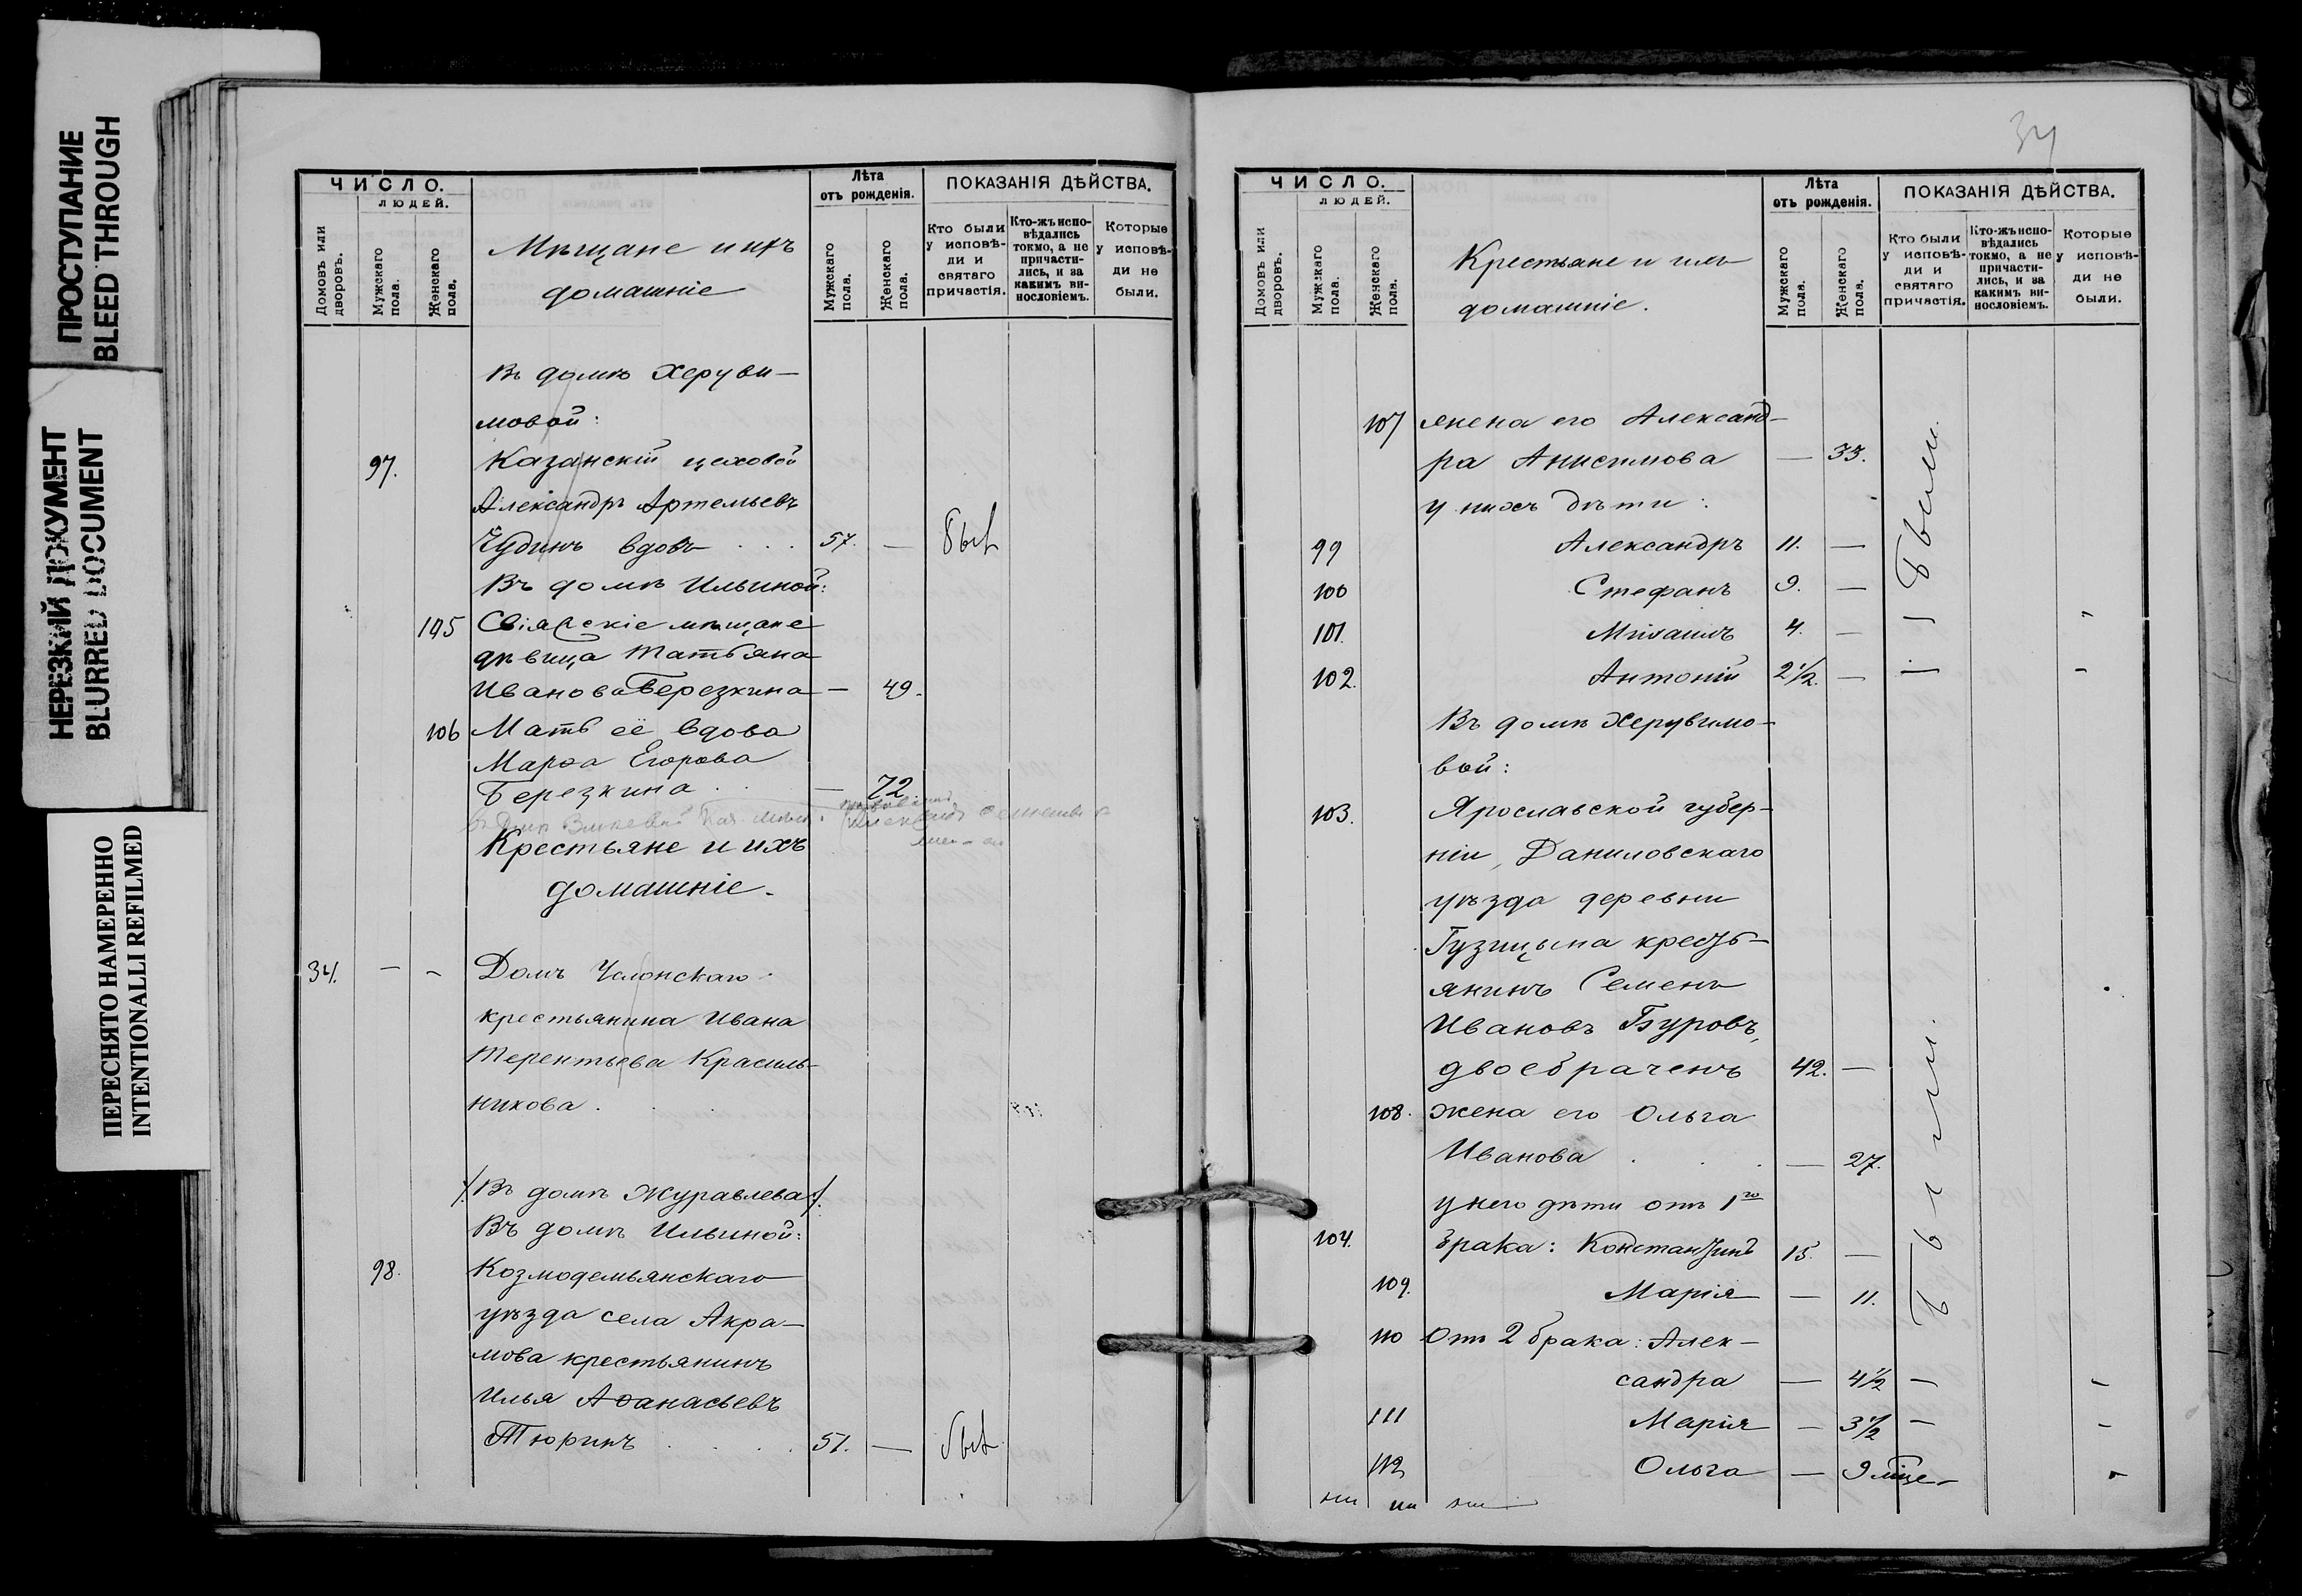 ПРОСТУПАНИЕ
BLEED THROUGH
НЕРЕЗКИЙ ДОКУМЕНТ
BLURRED DOCUMENT
ПЕРЕСНЯТО НАМЕРЕННО
INTENTIONALLI REFILMED
ЧИСЛО.
ЛЮДЕЙ.
Домовъ или дворовъ.
Мужскаго пола.
Женскаго пола.
Мѣщане и ихъ
домашніе
Лѣта
отъ рожденія.
Мужскаго пола.
Женскаго пола.
ПОКАЗАНІЯ ДѢЙСТВА.
Кто были у исповѣ-ди и святаго причастія.
Кто-жъ испо-вѣдались токмо, а не причасти-лись, и за какимъ ви-нословіемъ.
Которые у исповѣ-ди не были.
Въ домѣ Херуви-
мовой:
97. Казанскій цеховой
Александръ Артемьевъ
Чудинъ вдовъ . . . 57. — былъ
Въ домѣ Ильиной:
105 Свіяжскіе мѣщане
дѣвица Татьяна
Иванова Березкина — 49.
106 Мать её вдова
Марѳа Егорова
Березкина . . — 72.
Крестьяне и ихъ
домашніе.
34. — — Домъ Услонскаго
крестьянина Ивана
Терентьева Красиль-
никова .
/. Въ домѣ Журавлева /.
Въ домѣ Ильиной:
98. Козмодемьянскаго
уѣзда села Акра-
мова крестьянинъ
Илья Аѳанасьевъ
Тюринъ . . . . 51. — былъ
34
ЧИСЛО.
ЛЮДЕЙ.
Домовъ или дворовъ.
Мужскаго пола.
Женскаго пола.
Крестьяне и ихъ
домашніе.
Лѣта
отъ рожденія.
Мужскаго пола.
Женскаго пола.
ПОКАЗАНІЯ ДѢЙСТВА.
Кто были у исповѣ-ди и святаго причастія.
Кто-жъ испо-вѣдались токмо, а не причасти-лись, и за какимъ ви-нословіемъ.
Которые у исповѣ-ди не были.
107 жена его Александ-
ра Анисимова — 33.
у нихъ дѣти:
99 Александръ 11. —
100 Стефанъ 9. —
Были.
101. Михаилъ 4. — — -
102. Антоній 2 1/2. — — -
Въ домѣ Херувимо-
вой:
103. Ярославской губер-
ніи, Даниловскаго
уѣзда деревни
Гузицына кресть-
янинъ Семенъ
Ивановъ Буровъ,
двоебраченъ 42. —
108. жена его Ольга
Иванова . . . — 27.
у него дѣти отъ 1го
104. брака: Константинъ 15. —
109. Марія — 11.
Были.
110 Отъ 2 брака: Алек-
сандра — 4 1/2 — -
111 Марія — 3 1/2 — -
112 Ольга — 9 мѣс. — -